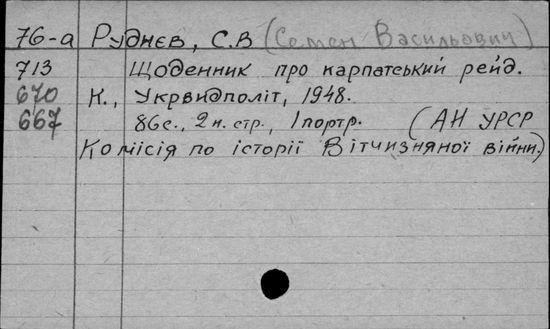 76-а Руднєв, С.В (Семен Васильович)
713 Щоденник про карпатський рейд.
670 К., Укрвидполіт, 1948.
667 86с., 2 н. стр., 1 портр. (АН УРСР
Комісія по історії Вітчизняної війни.)